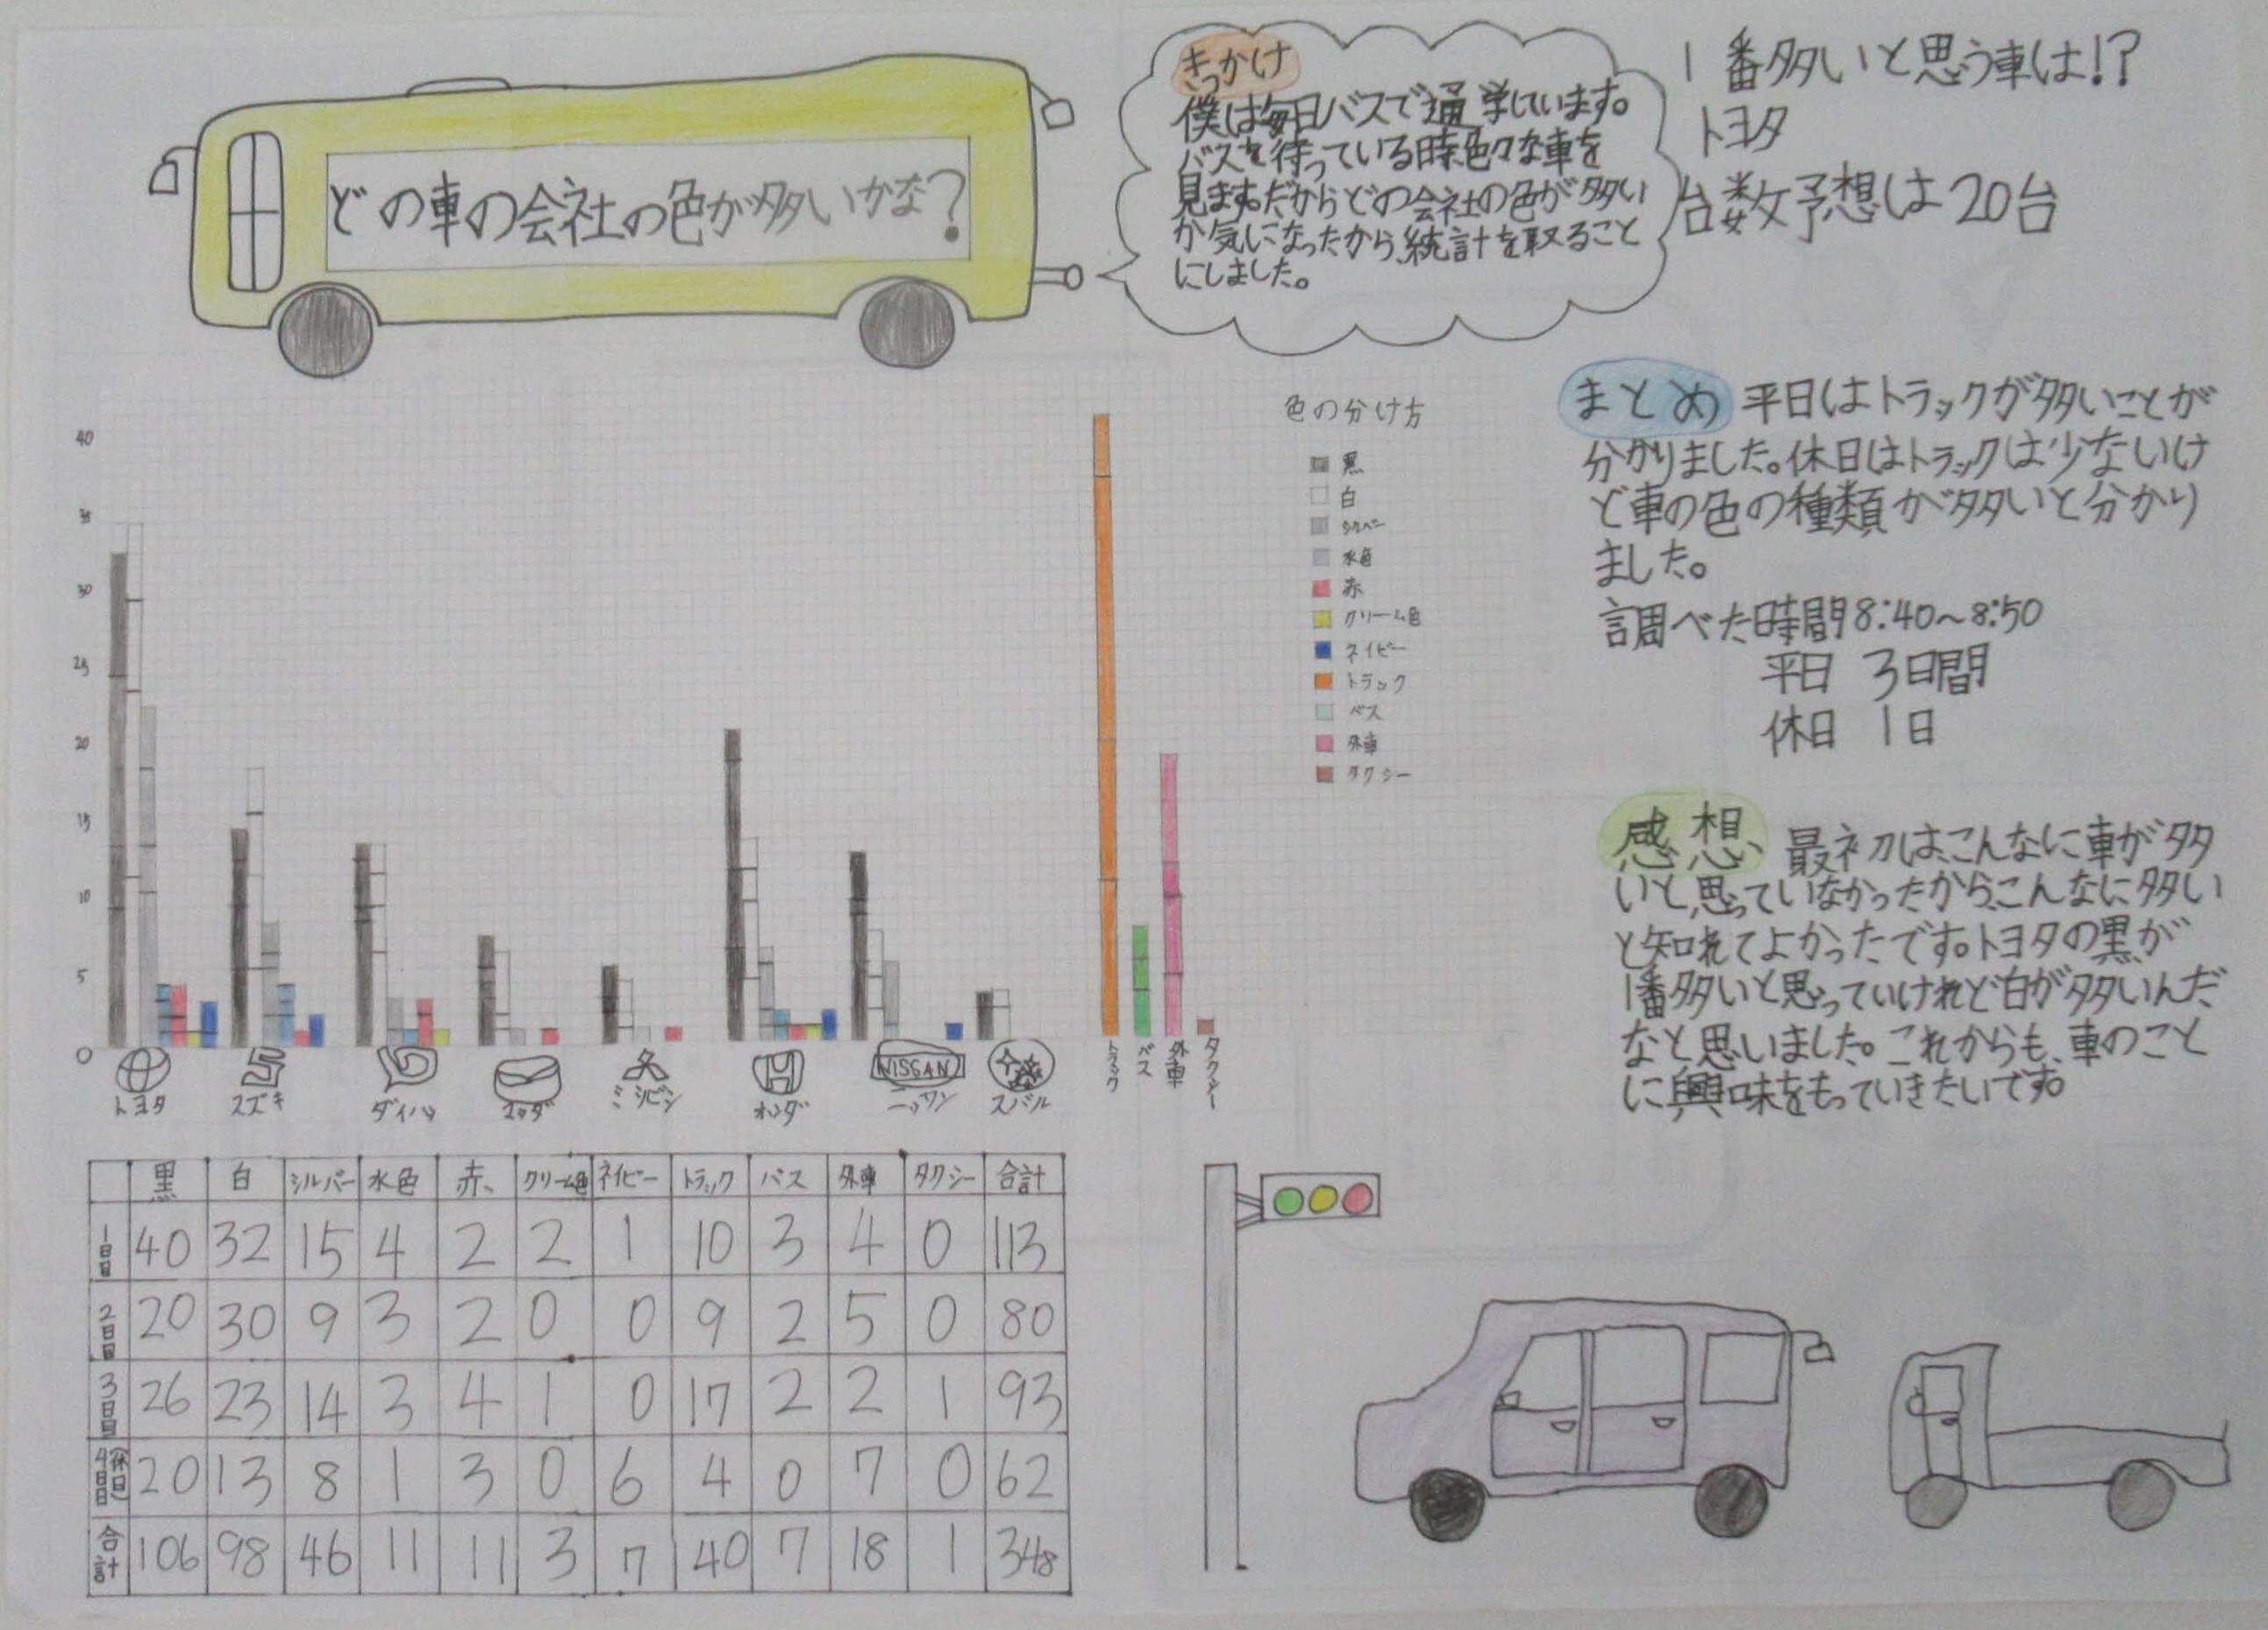 どの車の会社の色が多いかな?
きっかけ
僕は毎日バスで通学しています。
バスを待っている時色々な車を
見ます。だからどの会社の色が多い
か気になったから、統計を取ること
にしました。
1番多いと思う車は!?
トヨタ
台数予想は20台
まとめ 平日はトラックが多いことが
分かりました。休日はトラックは少ないけ
ど車の色の種類が多いと分かり
ました。
調べた時間8:40～8:50
平日 3日間
休日 1日
感想 最初は、こんなに車が多
いと思っていなかったから、こんなに多い
と知れてよかったです。トヨタの黒が
1番多いと思っていけれど白が多いんだ
なと思いました。これからも、車のこと
に興味をもっていきたいです。
色の分け方
黒
白
シルバー
水色
赤
クリーム色
ネイビー
トラック
バス
外車
タクシー
40
35
30
25
20
15
10
5
0
NISSAN
トヨタ スズキ ダイハツ マツダ ミツビシ ホンダ ニッサン スバル トラック バス 外車 タクシー
黒 白 シルバー 水色 赤 クリーム色 ネイビー トラック バス 外車 タクシー 合計
1日目 40 32 15 4 2 2 1 10 3 4 0 113
2日目 20 30 9 3 2 0 0 9 2 5 0 80
3日目 26 23 14 3 4 1 0 17 2 2 1 93
4日目(休日) 20 13 8 1 3 0 6 4 0 7 0 62
合計 106 98 46 11 11 3 7 40 7 18 1 348